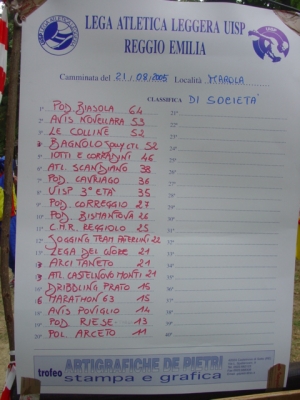 LEGA ATLETICA LEGGERA UISP
REGGIO EMILIA
Camminata del 21/08/2005 Località MAROLA
CLASSIFICA DI SOCIETA'
1° POD. BIASOLA 64
2° AVIS NOVELLARA 53
3° LE COLLINE 52
BAGNOLO 52
5° IOTTI E CORRADINI 46
6° ATL. SCANDIANO 38
7° POD. CAVRIAGO 36
8° UISP 3° ETÀ 35
9° POD. CORREGGIO 27
10° POD. BISMANTOVA 26
11° C.M.R. REGGIOLO 25
12° JOGGING TEAM PATERLINI 22
13° LEGA DEL CUORE 21
ARCI TANETO 21
ATL. CASTELNOVO MONTI 21
16° DRIBBLING PRATO 15
MARATHON 63 15
18° AVIS POVIGLIO 14
19° POD. RIESE 13
20° POL. ARCETO 11
21°
22°
23°
24°
25°
26°
27°
28°
29°
30°
31°
32°
33°
34°
35°
36°
37°
38°
39°
40°
trofeo
ARTIGRAFICHE DE PIETRI
stampa e grafica